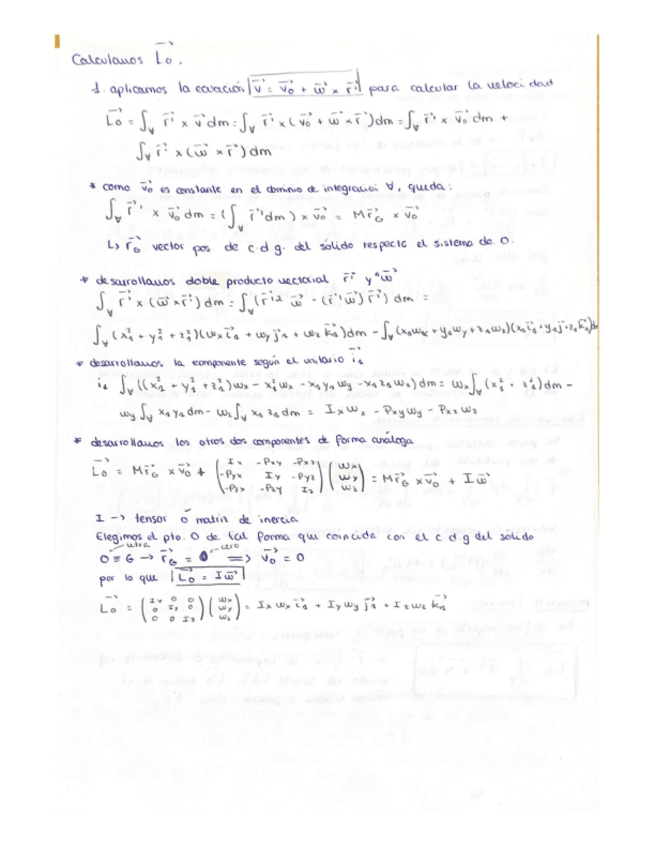 Calculamos L⃗o.
1. aplicamos la ecuación v⃗ = v⃗o + ω⃗ × r⃗' para calcular la velocidad
L⃗o = ∫∀ r⃗' × v⃗ dm = ∫∀ r⃗' × (v⃗o + ω⃗ × r⃗') dm = ∫∀ r⃗' × v⃗o dm +
∫∀ r⃗' × (ω⃗ × r⃗') dm
* como v⃗o es constante en el dominio de integración ∀, queda:
∫∀ r⃗' × v⃗o dm = (∫∀ r⃗' dm) × v⃗o = M r⃗G × v⃗o
↳ r⃗G vector pos. de c.d.g. del sólido respecto el sistema de O.
* desarrollamos doble producto vectorial r⃗' y ω⃗
∫∀ r⃗' × (ω⃗ × r⃗') dm = ∫∀ (r⃗'² ω⃗ - (r⃗' ω⃗) r⃗') dm =
∫∀ (x₁² + y₁² + z₁²)(ωx i⃗₁ + ωy j⃗₁ + ωz k⃗₁) dm - ∫∀ (x₁ωx + y₁ωy + z₁ωz)(x₁ i⃗₁ + y₁ j⃗₁ + z₁ k⃗₁) dm
* desarrollamos la componente según el unitario i⃗₁
i₁ ∫∀ ((x₁² + y₁² + z₁²) ωx - x₁² ωx - x₁y₁ωy - x₁z₁ωz) dm = ωx ∫∀ (x₁² + z₁²) dm -
ωy ∫∀ x₁y₁ dm - ωz ∫∀ x₁z₁ dm = Ix ωx - Pxy ωy - Pxz ωz
* desarrollamos los otros dos componentes de forma análoga
L⃗o = M r⃗G × v⃗o + (Ix -Pxy -Pxz; -Pyx Iy -Pyz; -Pzx -Pzy Iz) (ωx; ωy; ωz) = M r⃗G × v⃗o + I ω⃗
I → tensor o matriz de inercia
Elegimos el pto. O de tal forma que coincida con el c.d.g del sólido
letra cero
O ≡ G → r⃗G = 0 ⟹ v⃗o = 0
por lo que L⃗o = I ω⃗
L⃗o = (Ix 0 0; 0 Iy 0; 0 0 Iz) (ωx; ωy; ωz) = Ix ωx i⃗₁ + Iy ωy j⃗₁ + Iz ωz k⃗₁